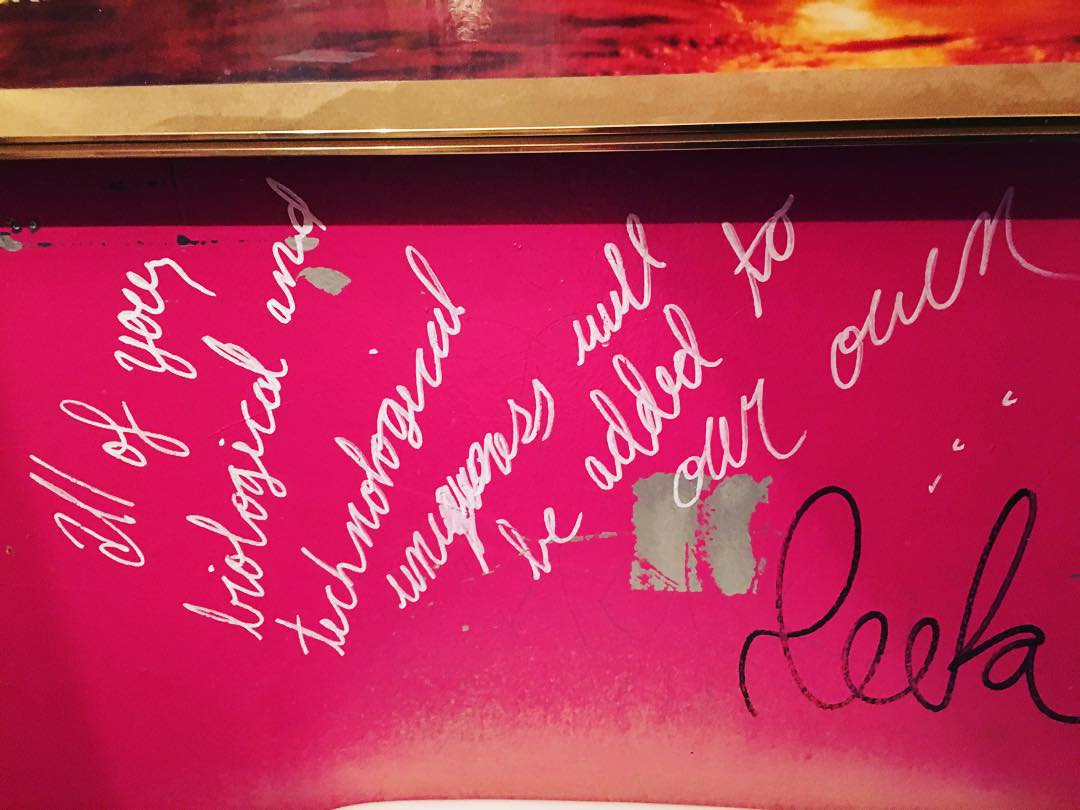 All of your
biological and
technological
uniqueness will
be added to
our own
...